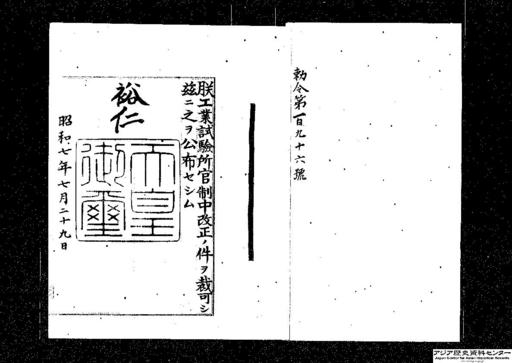 勅令第百九十六號
朕工業試驗所官制中改正ノ件ヲ裁可シ
茲ニ之ヲ公布セシム
裕仁
天皇
御璽
昭和七年七月二十九日
アジア歴史資料センター
Japan Center for Asian Historical Records